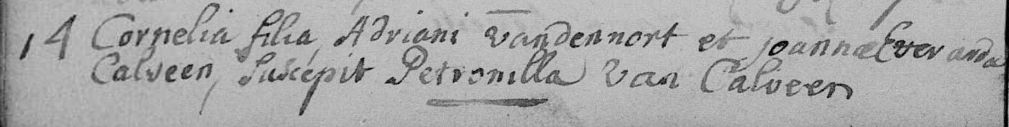 14 Cornelia filia Adriani vandennort et joannæ Everanda
Calveen, suscepit Petronilla Van Calveen